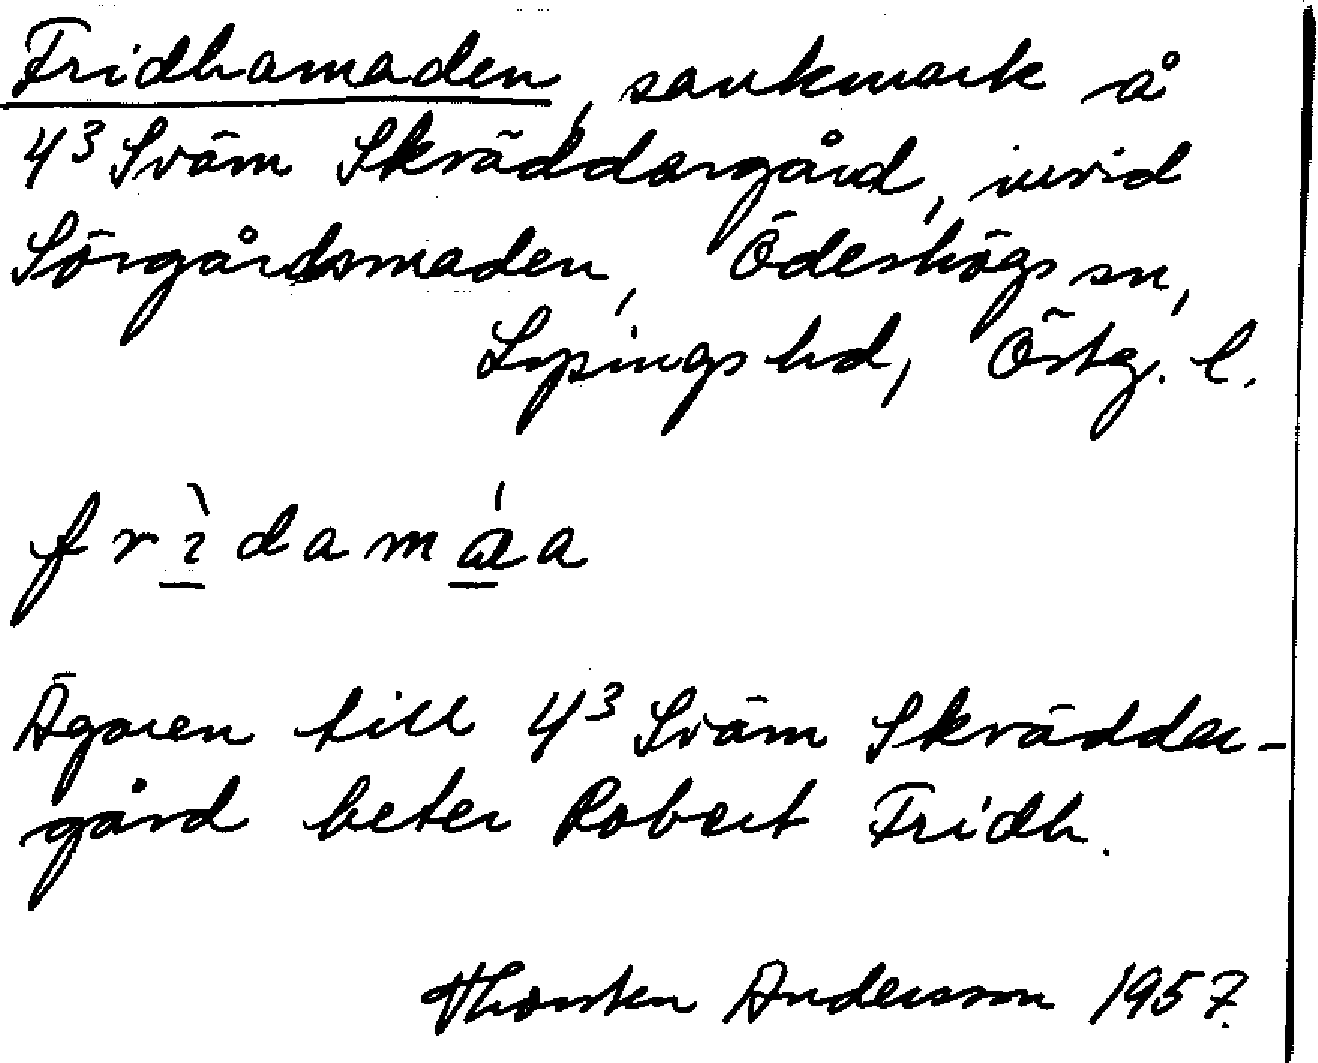 Fridhamaden, sankmark å
4³ Sväm Skräddargård, invid
Sörgårdsmaden, Ödeshögs sn,
Lysings hd, Östg. l.
frìdamáa
Ägaren till 4³ Sväm Skräddar-
gård heter Robert Fridh.
Thorsten Andersson 1957.